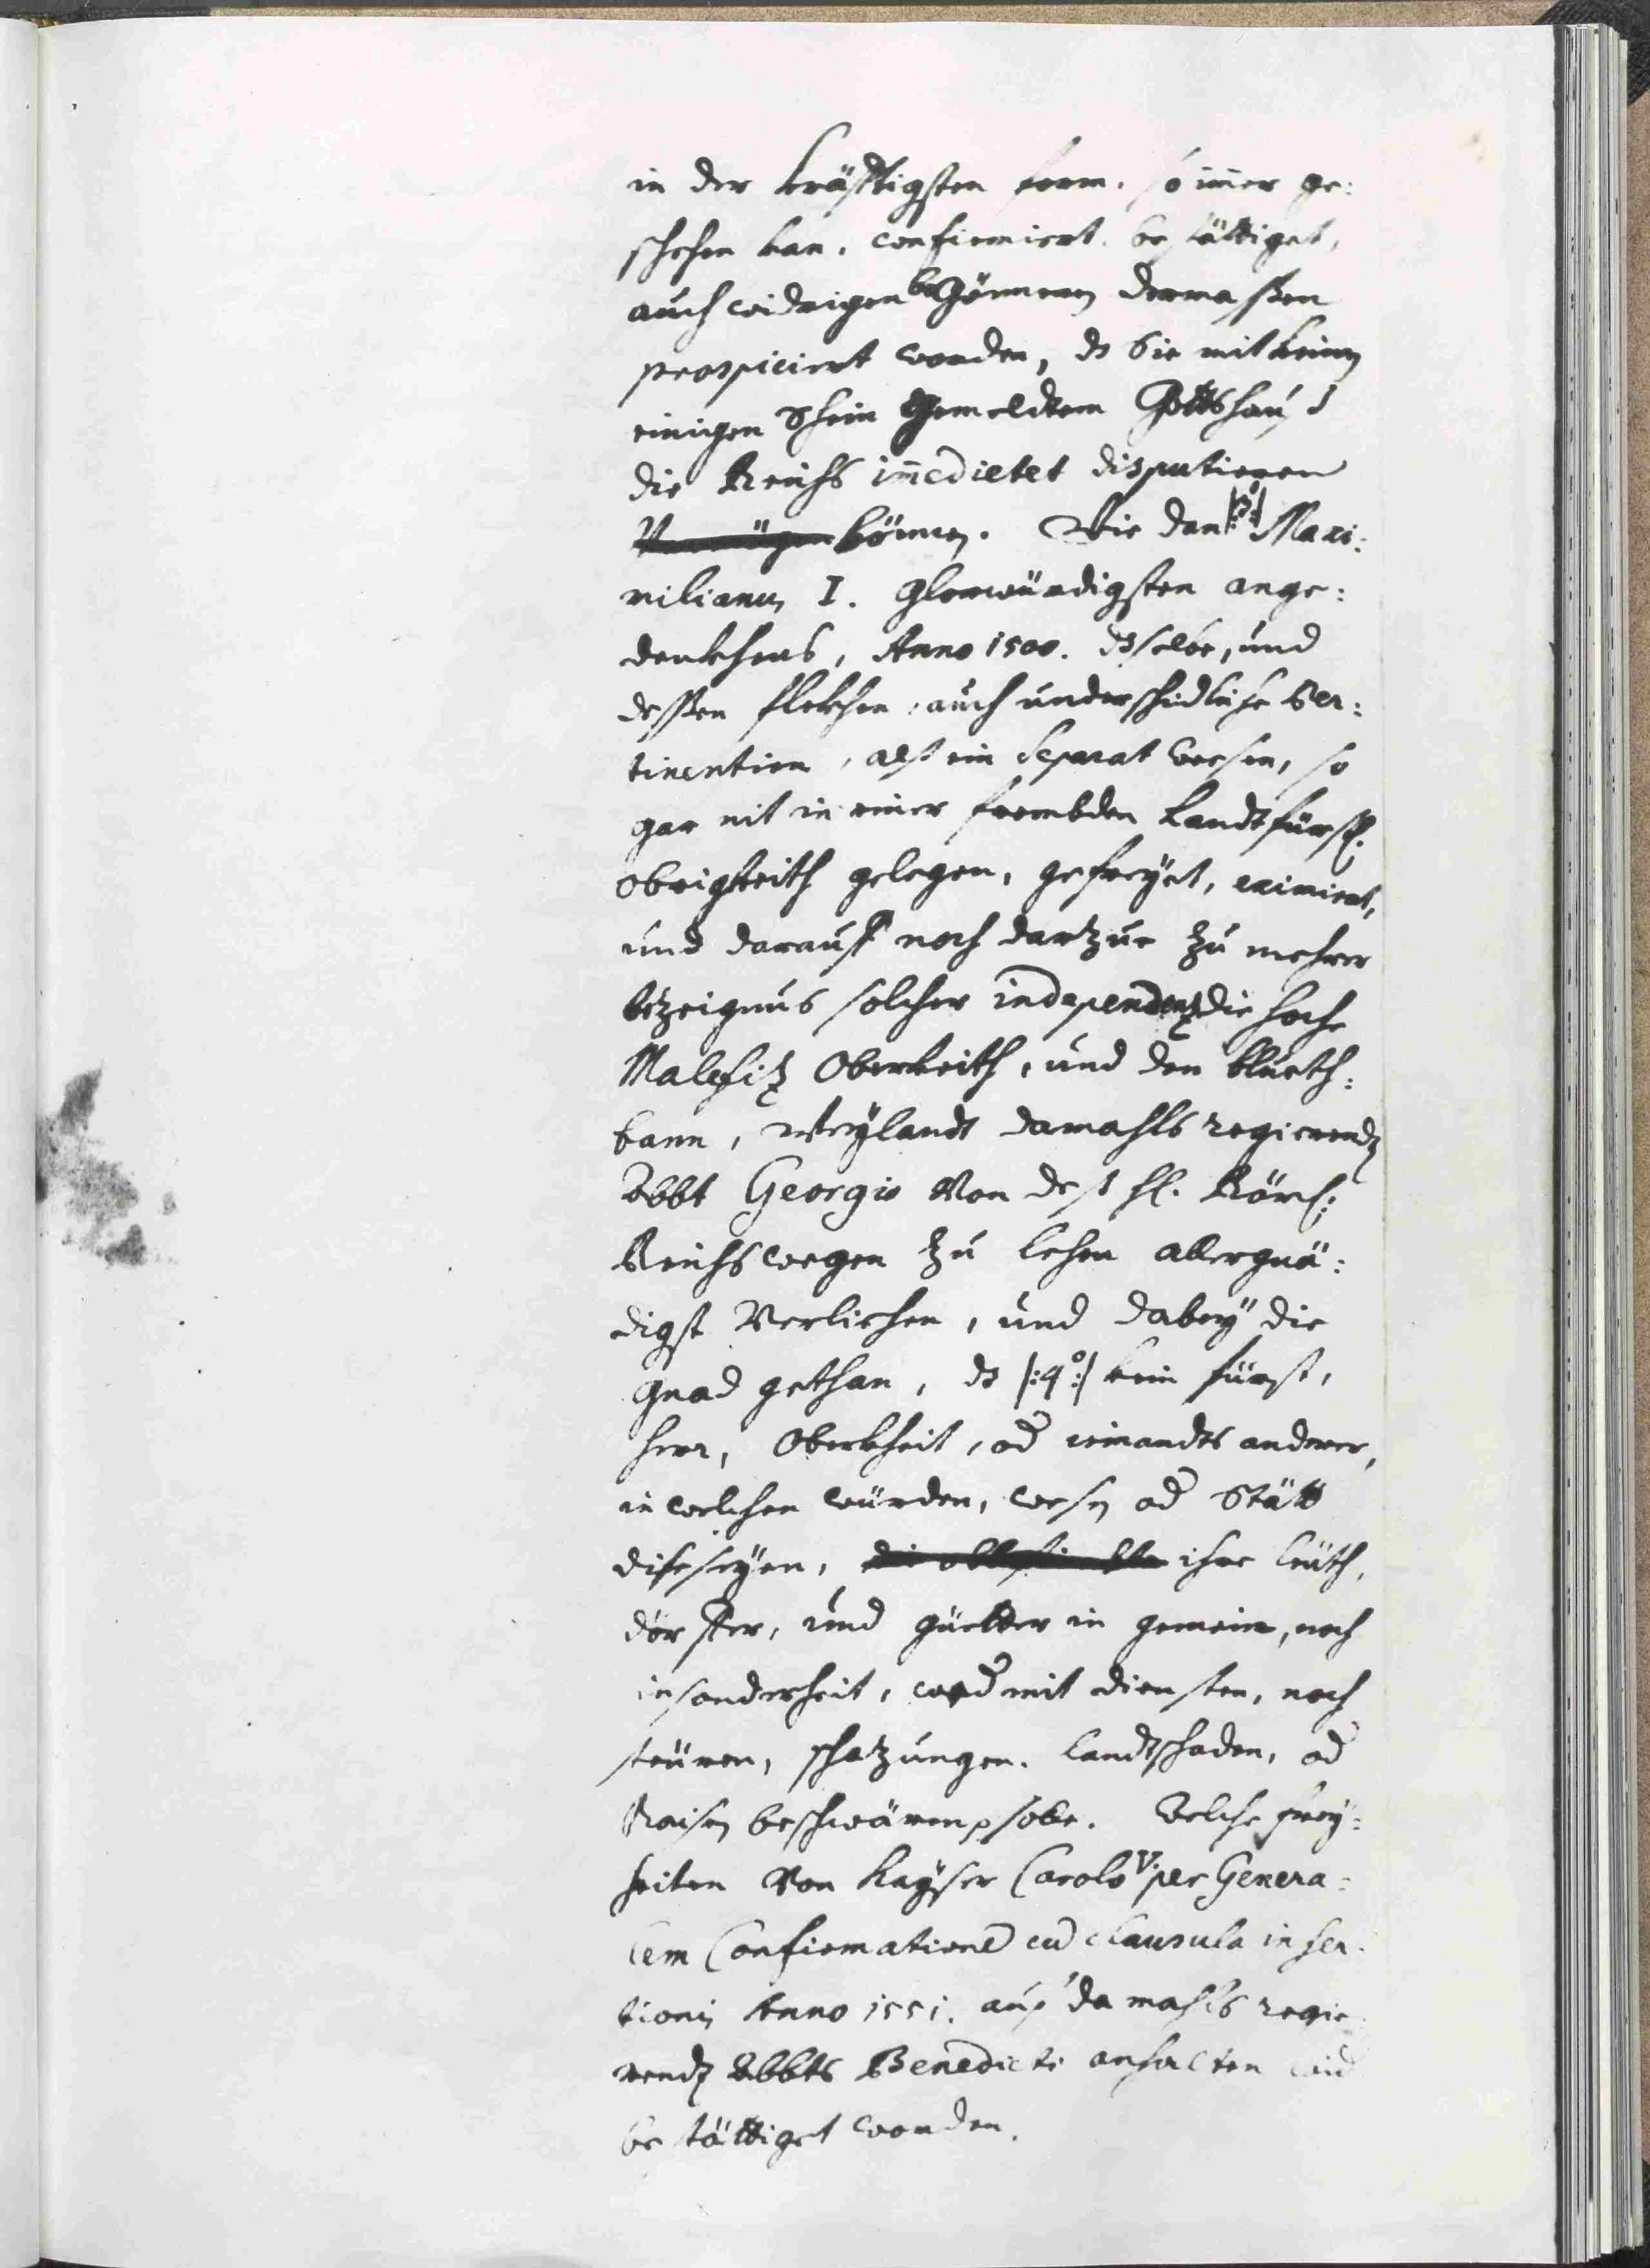 in der kräfftigsten form, so im̄er ge:
schehen kan, confirmiert, bestättiget,
auch widrigen beginneren dermassen
prospiciert worden, ds Sie mit keinem
einigen Schein gemeldtem Gottshauß
die Reichs im̄edietet disputieren
können. Wie dan |:3º:| Maxi:
milianus I. Glorwürdigsten ange:
denckhens, Anno 1500. dsselbe, und
dessen fleckhen, auch underschidliche Per:
tinentien, alß ein Separat wesen, so
gar nit in einer frembden Landtsfürstl.
obrigkeith gelegen, gefreÿet, eximiert,
und darauff noch dartzue zu mehrer
bezeignus solcher independentz die hoche
Malefitz Oberkeith, und den blueth:
bann, weÿlandt damahls regierendẽ
Abbt Georgio Von deß hl. Röml:
Reichs wegen zu lehen allergnä:
digst Verlichen, und dabeÿ die
Gnad gethan, ds |:4º:| kein fürst,
herr, Oberkheit, od iemandts anderer,
in welchen würden, wesen od Städt
die seÿen, ihre leüth,
dörffer, und güetter in gemein, noch
in sonderheit, wed mit diensten, noch
steüren, schatzungen, landtschaden, od
Raisen beschwären solle. Welche freÿ:
heiten Von Kaÿser Carolo V. per Genera:
lem Confirmationē cū clausula inser:
tionis Anno 1551. auf damahls regie
rendẽ Abbts Benedicti anhalten
bestättiget worden.